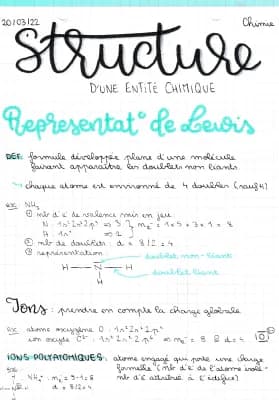 20/03/22
Chimie
Structure
D'UNE ENTITÉ CHIMIQUE
Représentat° de Lewis
DEF: formule développée plane d'une molécule
faisant apparaître les doublets non liants.
↪ chaque atome est environné de 4 doublets (sauf H)
ex: NH₃
① nb d'e⁻ de valence mis en jeu
N : 1s² 2s² 2p³ ⇒ 5
H : 1s¹ ⇒ 1
nₑ = 1×5 + 3×1 = 8
② nb de doublets : d = 8/2 = 4
③ représentation
doublet non-liant
H — N — H
H
doublet liant
Ions : prendre en compte la charge globale
ex: atome oxygène O : 1s² 2s² 2p⁴
ion oxyde O²⁻ : 1s² 2s² 2p⁶ ⇒ nₑ = 8 & d = 4
IONS POLYATOMIQUES : atome engagé qui porte une charge
formelle (nb d'e⁻ de l'atome isolé -
nb d'e⁻ attribué à l'édifice)
ex:
NH₄⁺ : nₑ = 9-1 = 8
d = 8/2 = 4